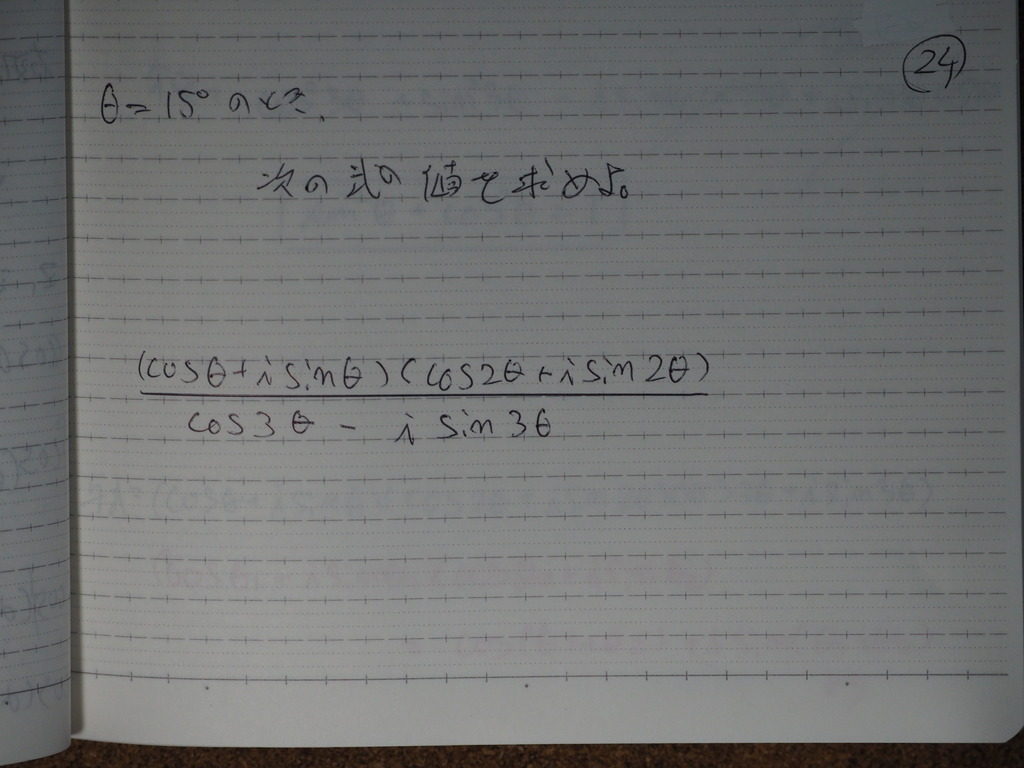 24
θ=15°のとき.
次の式の値を求めよ。
(cosθ+i sinθ)(cos2θ+i sin2θ)
cos3θ - i sin3θ